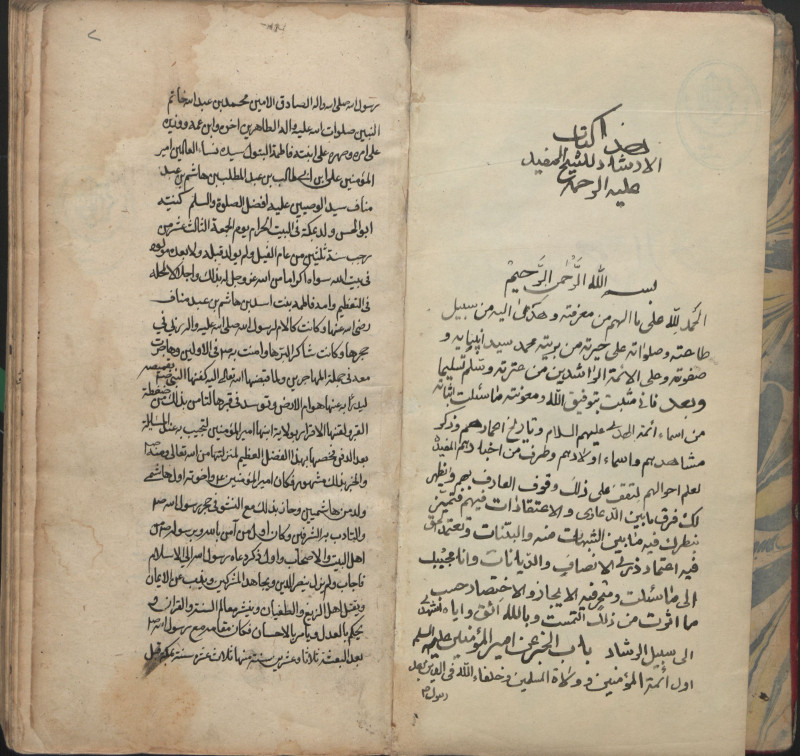 هذا كتاب
الارشاد للشيخ المفيد
عليه الرحمة
بسم الله الرحمن الرحيم
الحمد لله على ما الهم من معرفته وهدى اليه من سبيل
طاعته وصلواته على خيرته من بريته محمد سيد انبيائه و
صفوته وعلى الائمة الراشدين من عترته وسلم تسليما
وبعد فاني مثبت بتوفيق الله ومعونته ما سئلت اثباته
من اسماء ائمة الهدى عليهم السلام وتاريخ اعمارهم وذكر
مشاهدهم واسماء اولادهم وطرف من اخبارهم المفيدة
لعلم احوالهم لتقف على ذلك وقوف العارف بهم ويظهر
لك فرق ما بين الدعاوى والاعتقادات فيهم فتميز
بنظرك فيه ما بين الشبهات منه والبينات وتعتمد الحق
فيه اعتماد ذوى الانصاف والديانات وانا مجيبك
الى ما سئلت ومتوخ فيه الايجاز والاختصار حسب
ما اثرت من ذلك والتمست وبالله اثق واياه استهدى
الى سبيل الرشاد باب الخبر عن امير المؤمنين عليه السلم
اول ائمة المؤمنين وولاة المسلمين وخلفاء الله في الدين بعد
رسول
رسول الله صلى الله واله الصادق الامين محمد بن عبد الله خاتم
النبيين صلوات الله عليه واله الطاهرين اخوه وابن عمه ووزيره
على امره وصهره على ابنته فاطمة البتول سيدة نساء العالمين امير
المؤمنين على بن ابي طالب بن عبد المطلب بن هاشم بن عبد
مناف سيد الوصيين عليه افضل الصلوة والسلم كنيته
ابو الحسن ولد بمكة في البيت الحرام يوم الجمعة الثالث عشر من
رجب سنة ثلثين من عام الفيل ولم يولد قبله ولا بعده مولود
في بيت الله سواه اكراما من الله عز وجل له بذلك واجلالا لمحله
في التعظيم وامه فاطمة بنت اسد بن هاشم بن عبد مناف
رضى الله عنها وكانت كالام لرسول الله صلى الله عليه واله ربى في
حجرها وكان شاكرا لبرها وامنت به في الاولين وهاجرت
معه في جملة المهاجرين ولما قبضها الله تعالى اليه كفنها النبي بقميصه
ليدرأ به عنها هوام الارض وتوسد في قبرها لتامن بذلك من ضغطة
القبر ولقنها الاقرار بولاية ابنها امير المؤمنين لتجيب به عند المسائلة
بعد الدفن فخصها بهذا الفضل العظيم لمنزلتها من الله تعالى ومنه
والخبر بذلك مشهور فكان امير المؤمنين واخوته اول هاشمى
ولد من هاشميين وحاز بذلك مع النشو في حجر رسول الله
والتادب به الشرفين وكان اول من آمن بالله وبرسوله من
اهل البيت والاصحاب واول ذكر دعاه رسول الله الى الاسلام
فاجاب ولم يزل ينصر الدين ويجاهد المشركين ويذب عن الايمان
ويقتل اهل الزيغ والطغيان وينشر معالم السنة والقران و
يحكم بالعدل ويامر بالاحسان فكان مقامه مع رسول الله
بعد البعثة ثلاثا وعشرين سنة منها ثلاث عشرة سنة بمكة قبل